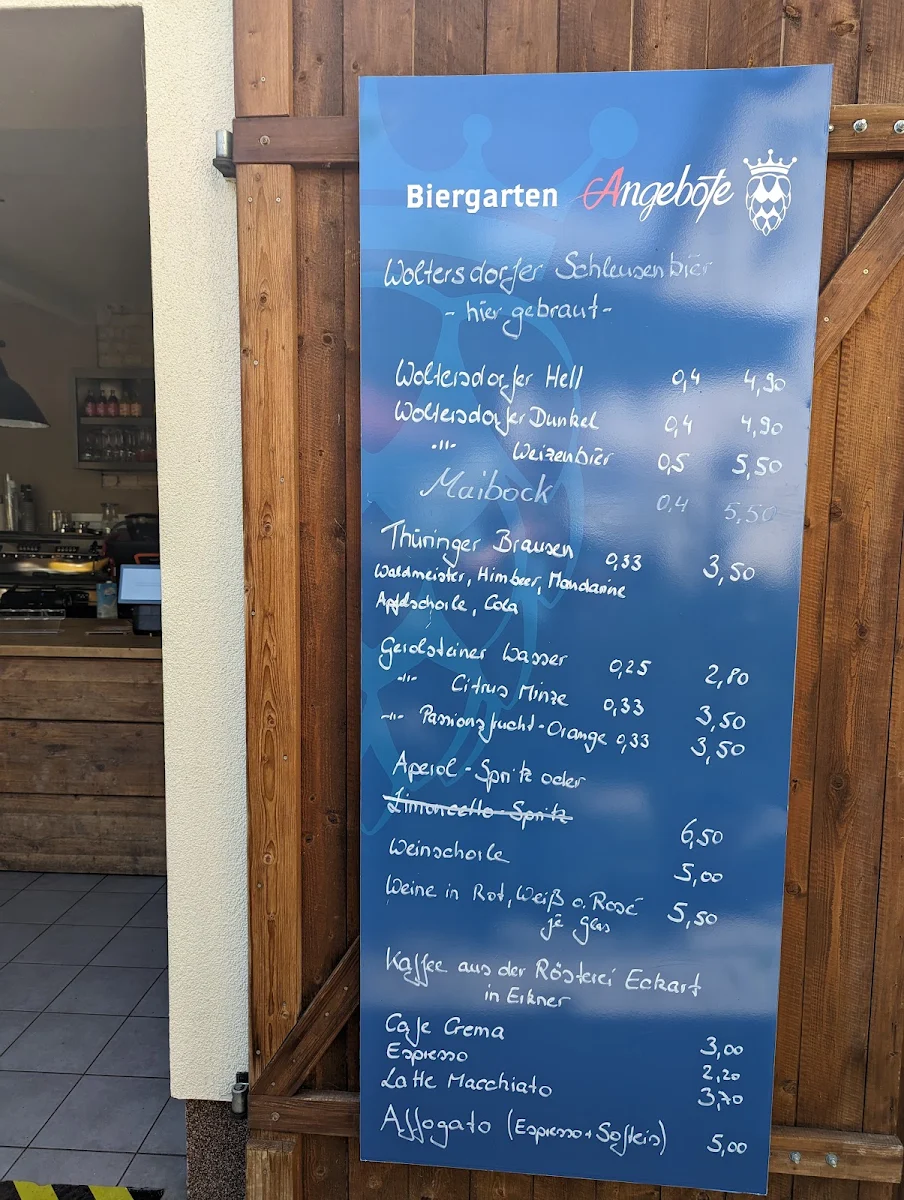 Biergarten Angebote
Woltersdorfer Schleusenbier
- hier gebraut -
Woltersdorfer Hell 0,4 4,90
Woltersdorfer Dunkel 0,4 4,90
-"- Weizenbier 0,5 5,50
Maibock 0,4 5,50
Thüringer Brausen 0,33 3,50
Waldmeister, Himbeer, Mandarine
Apfelschorle, Cola
Gerolsteiner Wasser 0,25 2,80
-"- Citrus Minze 0,33 3,50
-"- Passionsfrucht-Orange 0,33 3,50
Aperol-Spritz oder
Limoncello-Spritz 6,50
Weinschorle 5,00
Weine in Rot, Weiß o. Rosé 5,50
je Glas
Kaffee aus der Rösterei Eckart
in Erkner
Cafe Crema 3,00
Espresso 2,20
Latte Macchiato 3,70
Affogato (Espresso + Softeis) 5,00